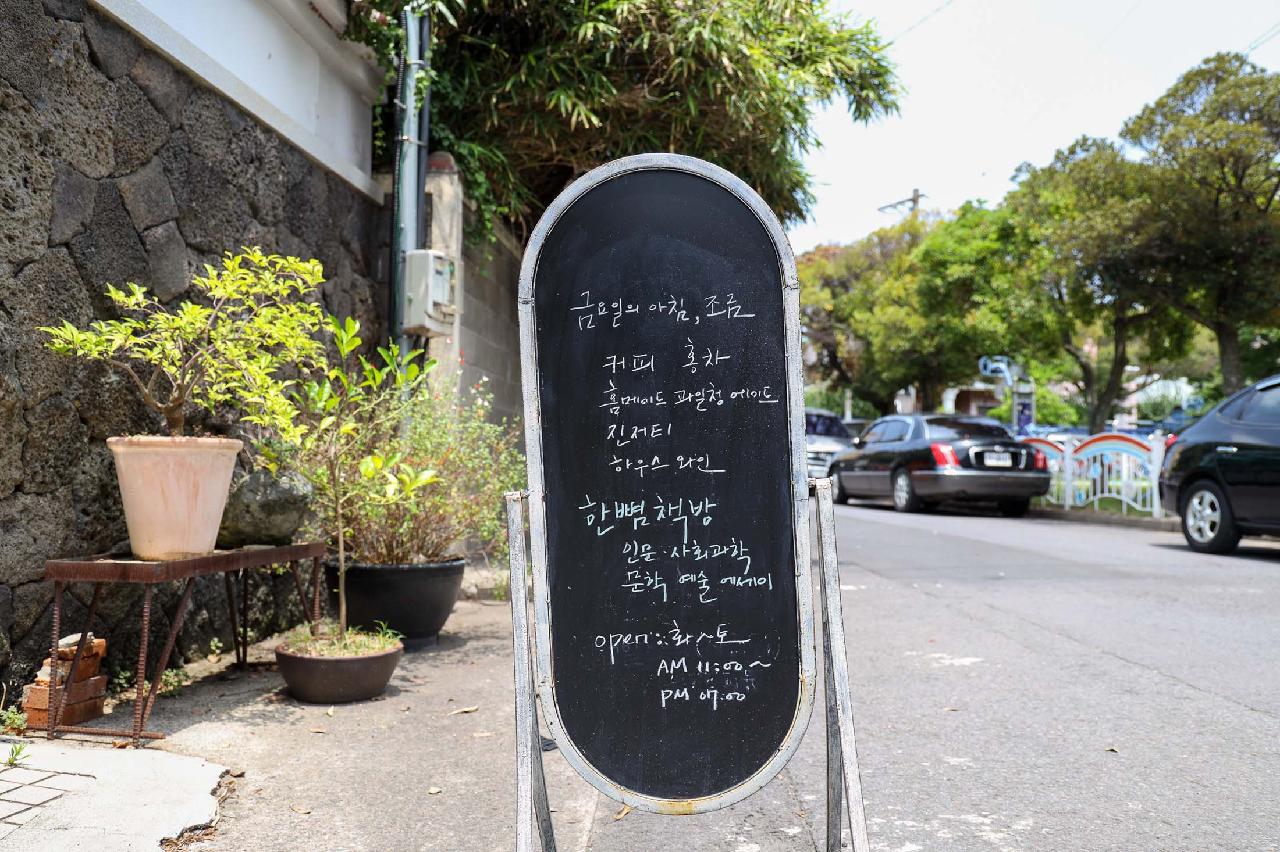 금요일의 아침, 조금
커피 홍차
홈메이드 과일청 에이드
진저티
하우스 와인
한뼘책방
인문·사회과학
문학 예술 에세이
open: 화~토
AM 11:00~
PM 07:00